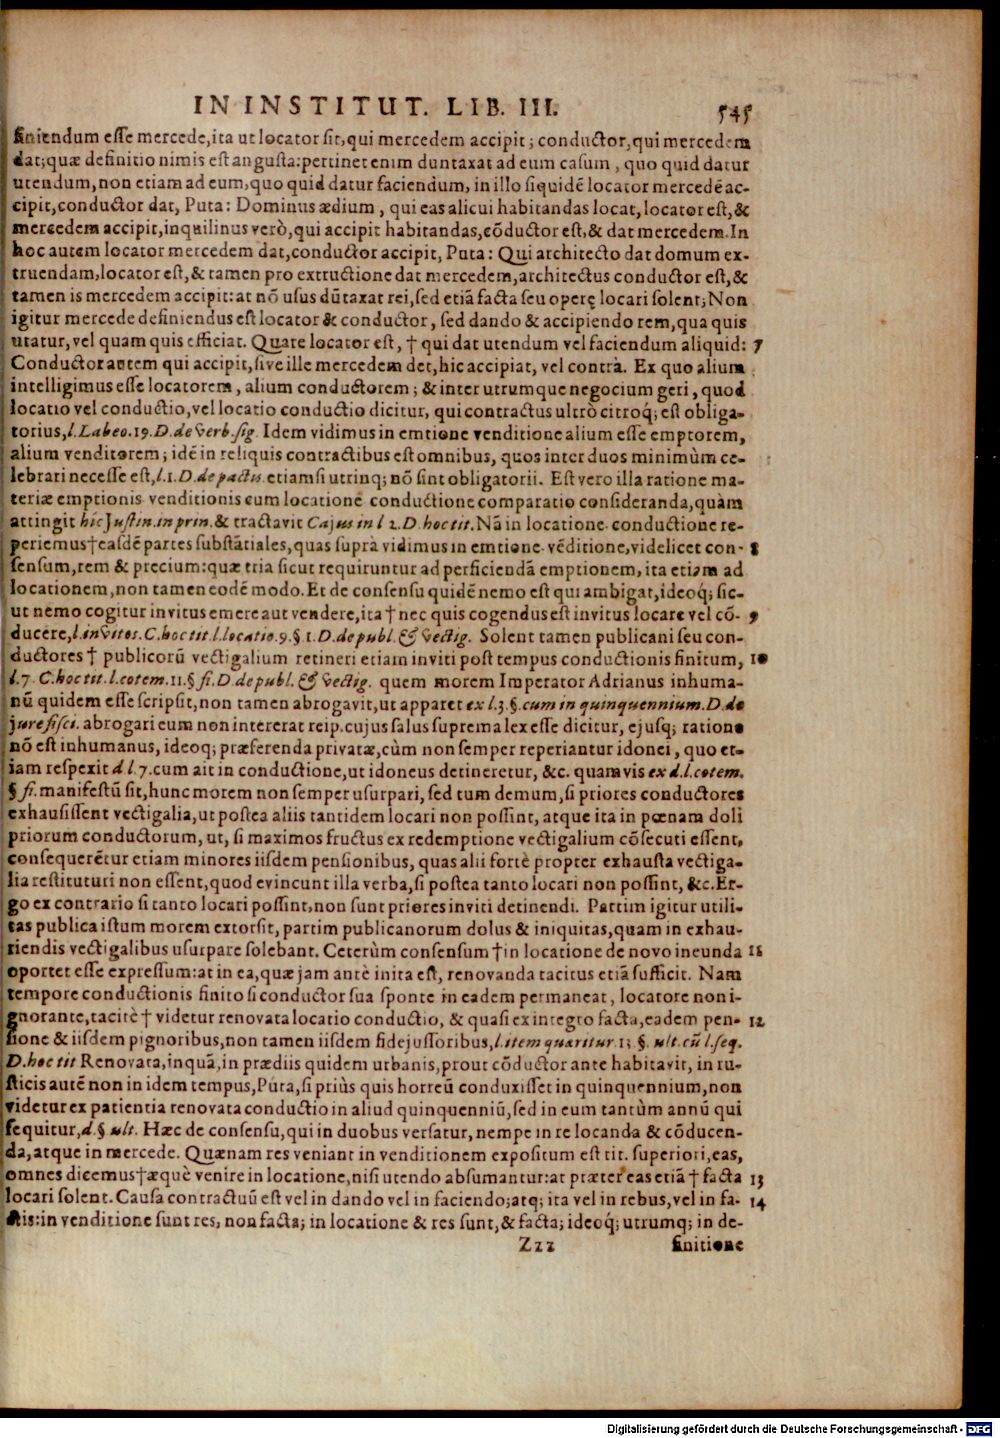 IN INSTITUT. LIB. III. 545
finiendum esse mercede, ita ut locator sit, qui mercedem accipit; conductor, qui mercedem
dat; quæ definitio nimis est angusta: pertinet enim duntaxat ad eum casum, quo quid datur
utendum, non etiam ad eum, quo quid datur faciendum, in illo siquidē locator mercedē ac-
cipit, conductor dat, Puta: Dominus ædium, qui eas alicui habitandas locat, locator est, &
mercedem accipit, inquilinus verò, qui accipit habitandas, cōductor est, & dat mercedem. In
hoc autem locator mercedem dat, conductor accipit, Puta: Qui architecto dat domum ex-
truendam, locator est, & tamen pro extructione dat mercedem, architectus conductor est, &
tamen is mercedem accipit: at nō usus dūtaxat rei, sed etiā facta seu operę locari solent; Non
igitur mercede definiendus est locator & conductor, sed dando & accipiendo rem, qua quis
utatur, vel quam quis efficiat. Quare locator est, † qui dat utendum vel faciendum aliquid: 7
Conductor autem qui accipit, sive ille mercedem det, hic accipiat, vel contrà. Ex quo alium
intelligimus esse locatorem, alium conductorem; & inter utrumque negocium geri, quod
locatio vel conductio, vel locatio conductio dicitur, qui contractus ultrò citroq́; est obliga-
torius, l. Labeo. 19. D. de verb. sig. Idem vidimus in emtione venditione alium esse emptorem,
alium venditorem; idē in reliquis contractibus est omnibus, quos inter duos minimùm ce-
lebrari necesse est, l. 1. D. de pactis. etiamsi utrinq; nō sint obligatorii. Est vero illa ratione ma-
teriæ emptionis venditionis cum locatione conductione comparatio consideranda, quàm
attingit hic Justin. in prin. & tractavit Cajus in l 2. D. hoc tit. Nā in locatione conductione re-
periemus † easdē partes substātiales, quas suprà vidimus in emtione vēditione, videlicet con- 8
sensum, rem & precium: quæ tria sicut requiruntur ad perficiendā emptionem, ita etiam ad
locationem, non tamen eodē modo. Et de consensu quidē nemo est qui ambigat, ideoq́; sic-
ut nemo cogitur invitus emere aut vendere, ita † nec quis cogendus est invitus locare vel cō- 9
ducere, l. invitos. C. hoc tit. l. locatio. 9. § 1. D. de publ. & vectig. Solent tamen publicani seu con-
ductores † publicorū vectigalium retineri etiam inviti post tempus conductionis finitum, 10
l. 7. C. hoc tit. l. cotem. 11. § fi. D. de publ. & vectig. quem morem Imperator Adrianus inhuma-
nū quidem esse scripsit, non tamen abrogavit, ut apparet ex l. 3. §. cum in quinquennium. D. de
jure fisci. abrogari eum non intererat reip. cujus salus suprema lex esse dicitur, ejusq́; ratione
nō est inhumanus, ideoq́; præferenda privatæ, cùm non semper reperiantur idonei, quo et-
iam respexit d l. 7. cum ait in conductione, ut idoneus detineretur, &c. quamvis ex d. l. cotem.
§ fi. manifestū sit, hunc morem non semper usurpari, sed tum demum, si priores conductores
exhausissent vectigalia, ut postea aliis tantidem locari non possint, atque ita in pœnam doli
priorum conductorum, ut, si maximos fructus ex redemptione vectigalium cōsecuti essent,
consequerētur etiam minores iisdem pensionibus, quas alii fortè propter exhausta vectiga-
lia restituturi non essent, quod evincunt illa verba, si postea tanto locari non possint, &c. Er-
go ex contrario si tanto locari possint, non sunt priores inviti detinendi. Partim igitur utili-
tas publica istum morem extorsit, partim publicanorum dolus & iniquitas, quam in exhau-
riendis vectigalibus usurpare solebant. Ceterùm consensum † in locatione de novo ineunda 11
oportet esse expressum: at in ea, quæ jam antè inita est, renovanda tacitus etiā sufficit. Nam
tempore conductionis finito si conductor sua sponte in eadem permaneat, locatore non i-
gnorante, tacitè † videtur renovata locatio conductio, & quasi ex integro facta, eadem pen- 12
sione & iisdem pignoribus, non tamen iisdem fidejussoribus, l. item quæritur 13 §. ult. cū l. seq.
D. hoc tit Renovata, inquā, in prædiis quidem urbanis, prout cōductor ante habitavit, in ru-
sticis autē non in idem tempus, Puta, si priùs quis horreū conduxisset in quinquennium, non
videtur ex patientia renovata conductio in aliud quinquenniū, sed in eum tantùm annū qui
sequitur, d. § ult. Hæc de consensu, qui in duobus versatur, nempe in re locanda & cōducen-
da, atque in mercede. Quænam res veniant in venditionem expositum est tit. superiori, eas,
omnes dicemus † æquè venire in locatione, nisi utendo absumantur: at præter eas etiā † facta 13
locari solent. Causa contractuū est vel in dando vel in faciendo; atq; ita vel in rebus, vel in fa- 14
ctis: in venditione sunt res, non facta; in locatione & res sunt, & facta; ideoq́; utrumq; in de-
Zzz finitione
Digitalisierung gefördert durch die Deutsche Forschungsgemeinschaft - DFG